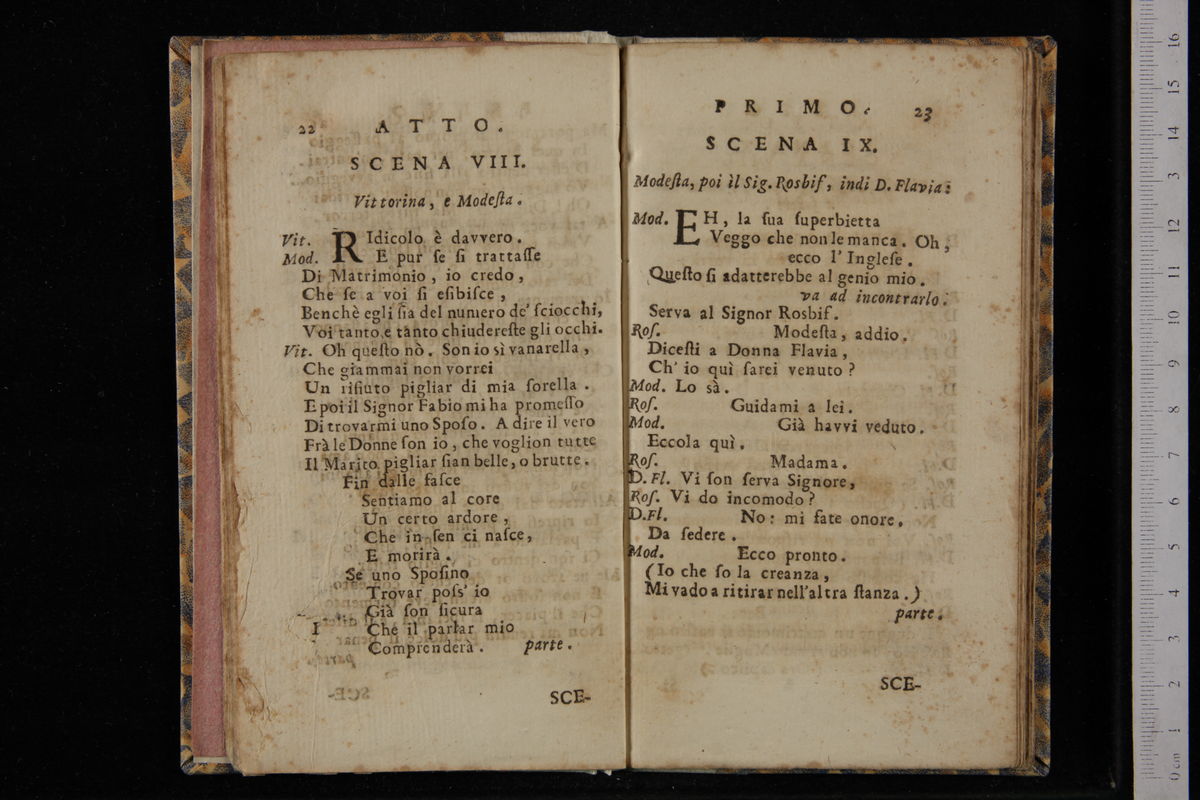 22 ATTO.
SCENA VIII.
Vittorina, e Modeſta.
Vit. RIdicolo è davvero.
Mod. E pur ſe ſi trattaſſe
Di Matrimonio, io credo,
Che ſe a voi ſi eſibiſce,
Benchè egli ſia del numero de' ſciocchi,
Voi tanto e tanto chiudereſte gli occhi.
Vit. Oh queſto nò. Son io sì vanarella,
Che giammai non vorrei
Un rifiuto pigliar di mia ſorella.
E poi il Signor Fabio mi ha promeſſo
Di trovarmi uno Spoſo. A dire il vero
Frà le Donne ſon io, che voglion tutte
Il Marito pigliar ſian belle, o brutte.
Fin dalle faſce
Sentiamo al core
Un certo ardore,
Che in ſen ci naſce,
E morirà.
Se uno Spoſino
Trovar poſs' io
Già ſon ſicura
Che il parlar mio
Comprenderà. parte.
SCE-
PRIMO. 23
SCENA IX.
Modeſta, poi il Sig. Rosbif, indi D. Flavia.
Mod. EH, la ſua ſuperbietta
Veggo che non le manca. Oh,
ecco l' Ingleſe.
Queſto ſi adatterebbe al genio mio.
va ad incontrarlo.
Serva al Signor Rosbif.
Roſ. Modeſta, addio.
Diceſti a Donna Flavia,
Ch' io quì ſarei venuto?
Mod. Lo sà.
Roſ. Guidami a lei.
Mod. Già havvi veduto.
Eccola quì.
Roſ. Madama.
D. Fl. Vi ſon ſerva Signore,
Roſ. Vi do incomodo?
D.Fl. No: mi fate onore.
Da ſedere.
Mod. Ecco pronto.
(Io che ſo la creanza,
Mi vado a ritirar nell'altra ſtanza.)
parte.
SCE-
0 cm 1 2 3 4 5 6 7 8 9 10 11 12 13 14 15 16